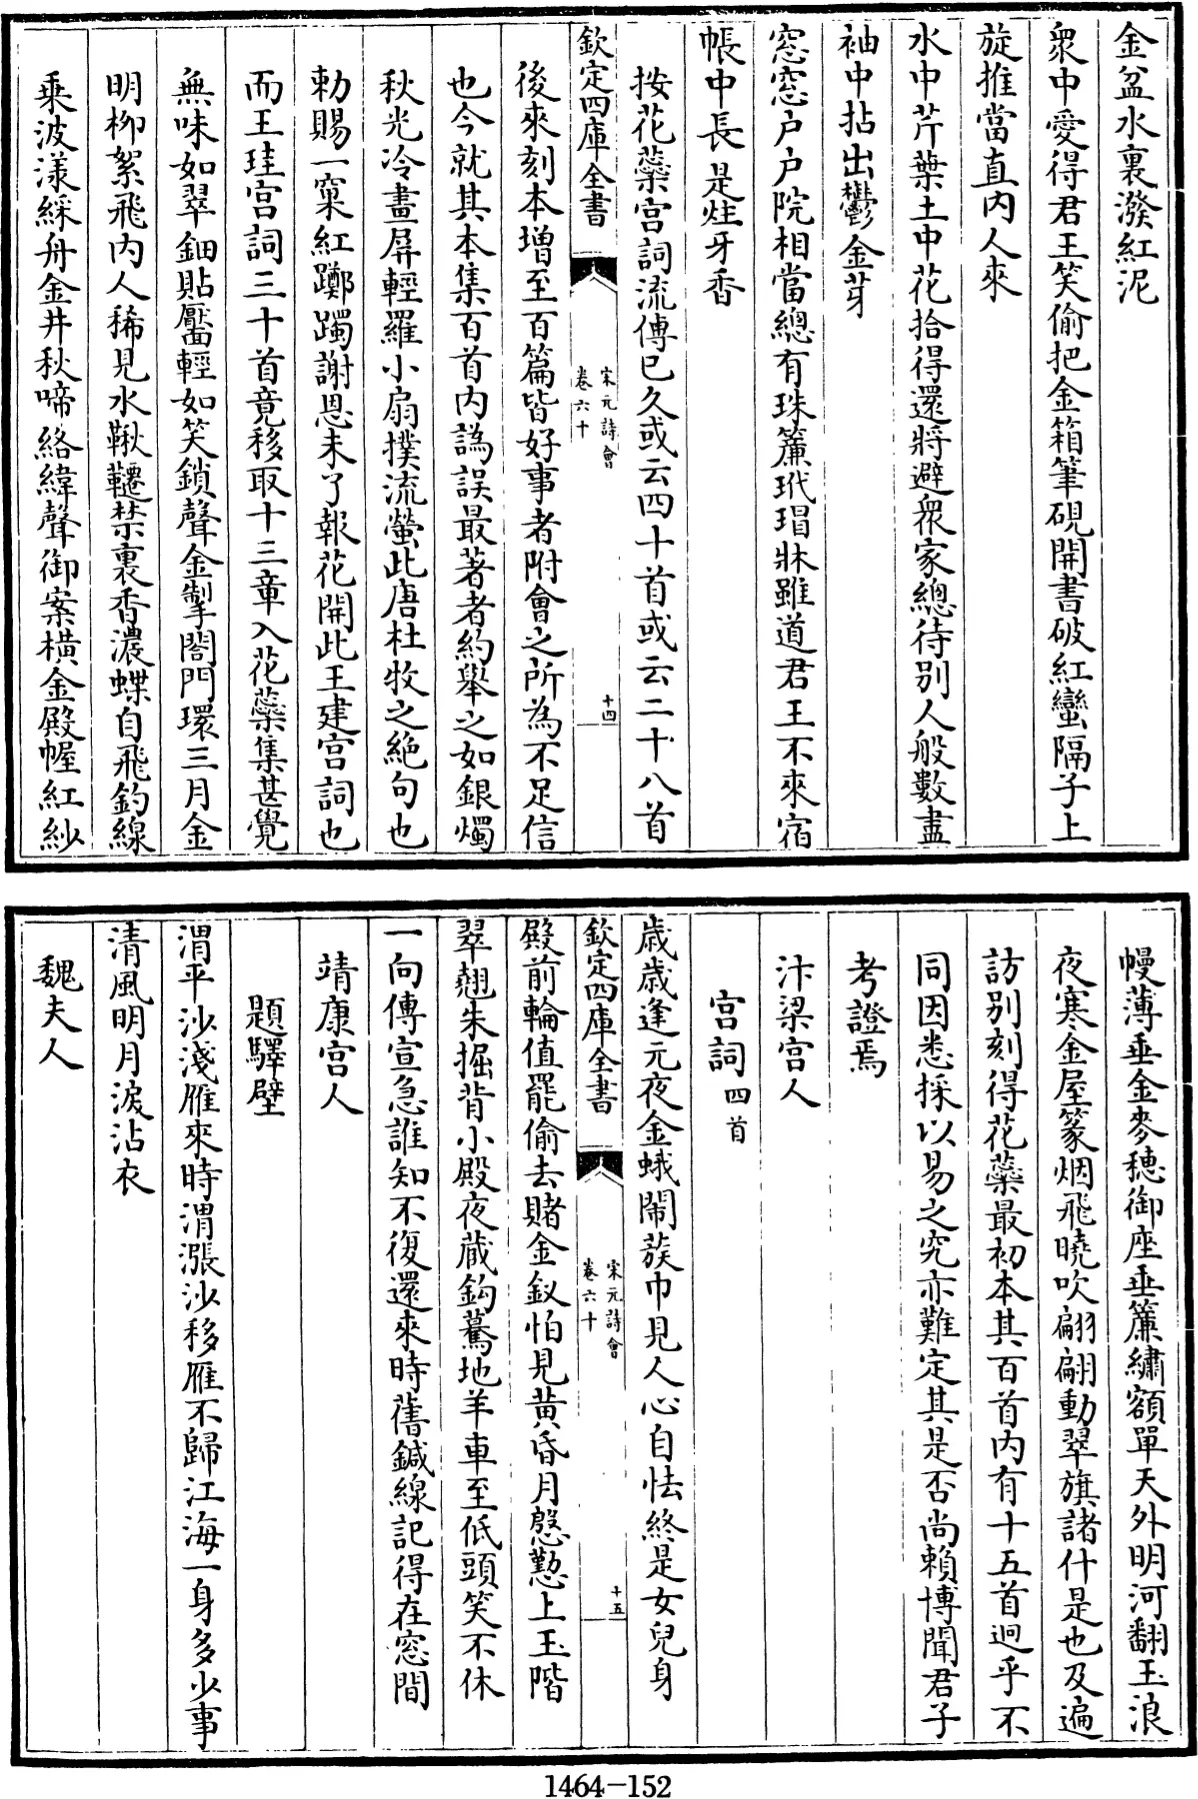 金盆水裏潑紅泥
衆中愛得君王笑偷把金箱筆硯開書破紅蠻隔子上
旋推當直内人來
水中芹葉土中花拾得還將避衆家總待别人般數盡
袖中拈出鬱金芽
窓窓户户院相當總有珠簾玳瑁牀雖道君王不來宿
帳中長是炷牙香
按花蘂宫詞流傳已久或云四十首或云二十八首
欽定四庫全書
宋元詩會
卷六十
十四
後來刻本增至百篇皆好事者附會之所為不足信
也今就其本集百首内譌誤最著者約舉之如銀燭
秋光冷畫屏輕羅小扇撲流螢此唐杜牧之絶句也
勅賜一窠紅躑躅謝恩未了報花開此王建宫詞也
而王珪宫詞三十首竟移取十三章入花蘂集甚覺
無味如翠鈿貼靨輕如笑鎖聲金掣閤門環三月金
明柳絮飛内人稀見水鞦韆禁裏香濃蝶自飛釣線
乘波漾綵舟金井秋啼絡緯聲御案横金殿幄紅紗
幔薄垂金麥穗御座垂簾繡額單天外明河翻玉浪
夜寒金屋篆烟飛曉吹翩翩動翠旗諸什是也及遍
訪别刻得花蘂最初本其百首内有十五首迥乎不
同因悉採以易之究亦難定其是否尚賴博聞君子
考證焉
汴梁宫人
宫詞四首
歳歳逢元夜金蛾鬧蔟巾見人心自怯終是女兒身
欽定四庫全書
宋元詩會
卷六十
十五
殿前輪值罷偷去賭金釵怕見黄昏月慇懃上玉階
翠翹朱掘背小殿夜蔵鈎驀地羊車至低頭笑不休
一向傳宣急誰知不復還來時舊鍼線記得在窓間
靖康宫人
題驛壁
渭平沙淺雁來時渭漲沙移雁不歸江海一身多少事
清風明月淚沾衣
魏夫人
1464-152